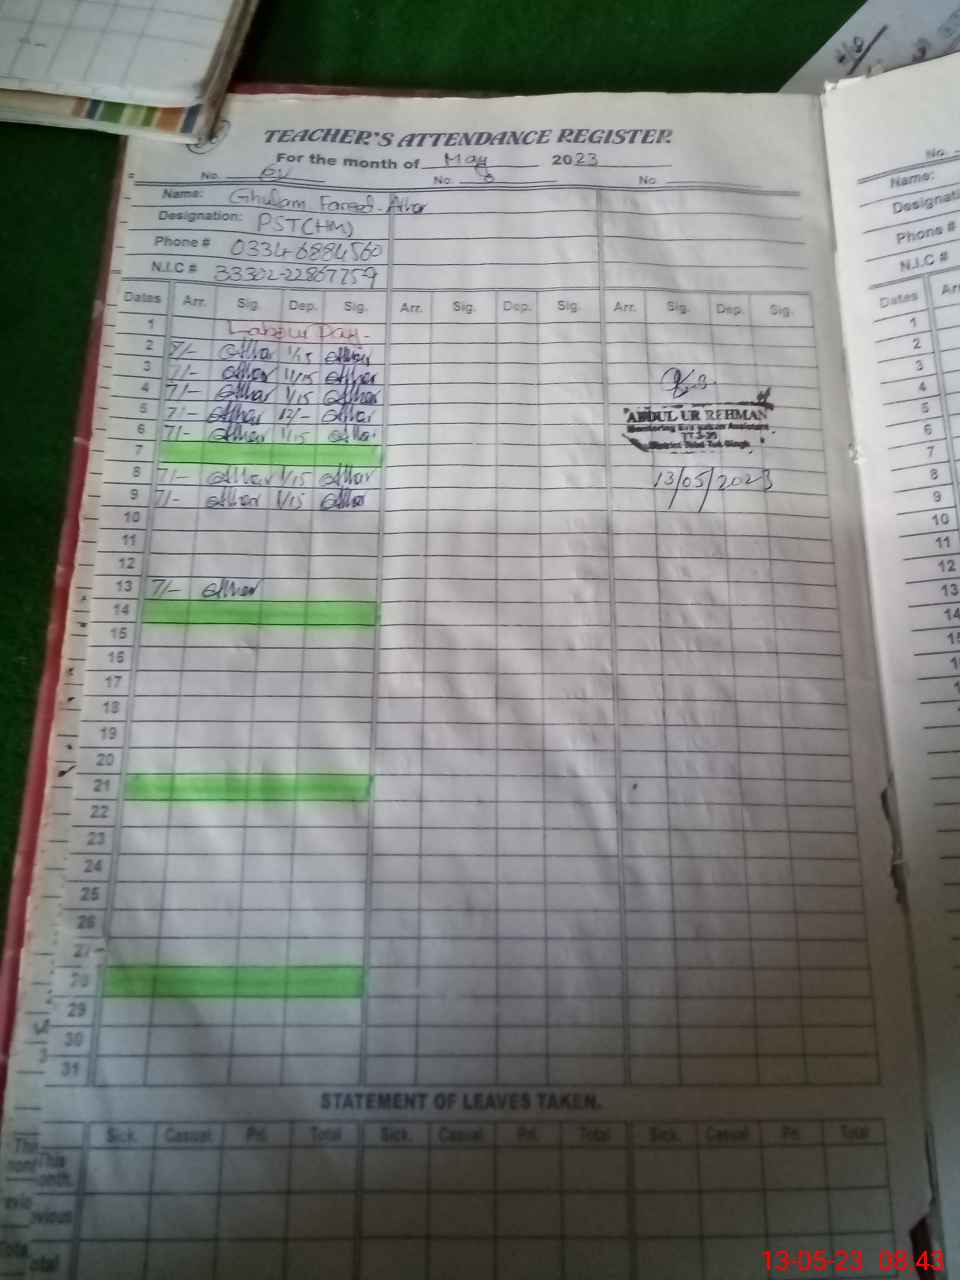 TEACHER'S ATTENDANCE REGISTER
For the month of May 2023
No. No. No.
Name: Ghulam Fareed Athar
Designation: PST(HM)
Phone # 0334-6884560
N.I.C # 33302-2286725-9
Dates Arr. Sig. Dep. Sig. Arr. Sig. Dep. Sig. Arr. Sig. Dep. Sig.
1 Labour Day
2 7/- Athar 1/15 Athar
3 7/- Athar 1/15 Athar
4 7/- Athar 1/15 Athar
5 7/- Athar 12/- Athar
6 7/- Athar 1/15 Athar
ABDUL UR REHMAN
7
8 7/- Athar 1/15 Athar
13/05/2023
9 7/- Athar 1/15 Athar
10
11
12
13 7/- Athar
14
15
16
17
18
19
20
21
22
23
24
25
26
27
28
29
30
31
STATEMENT OF LEAVES TAKEN.
Sick. Casual. Pri. Total Sick. Casual. Pri. Total Sick. Casual. Pri. Total
This
month.
No.
Name:
Phone #
N.I.C #
Dates
1
2
3
4
5
6
7
8
9
10
11
12
13
14
15
13-05-23 08:43